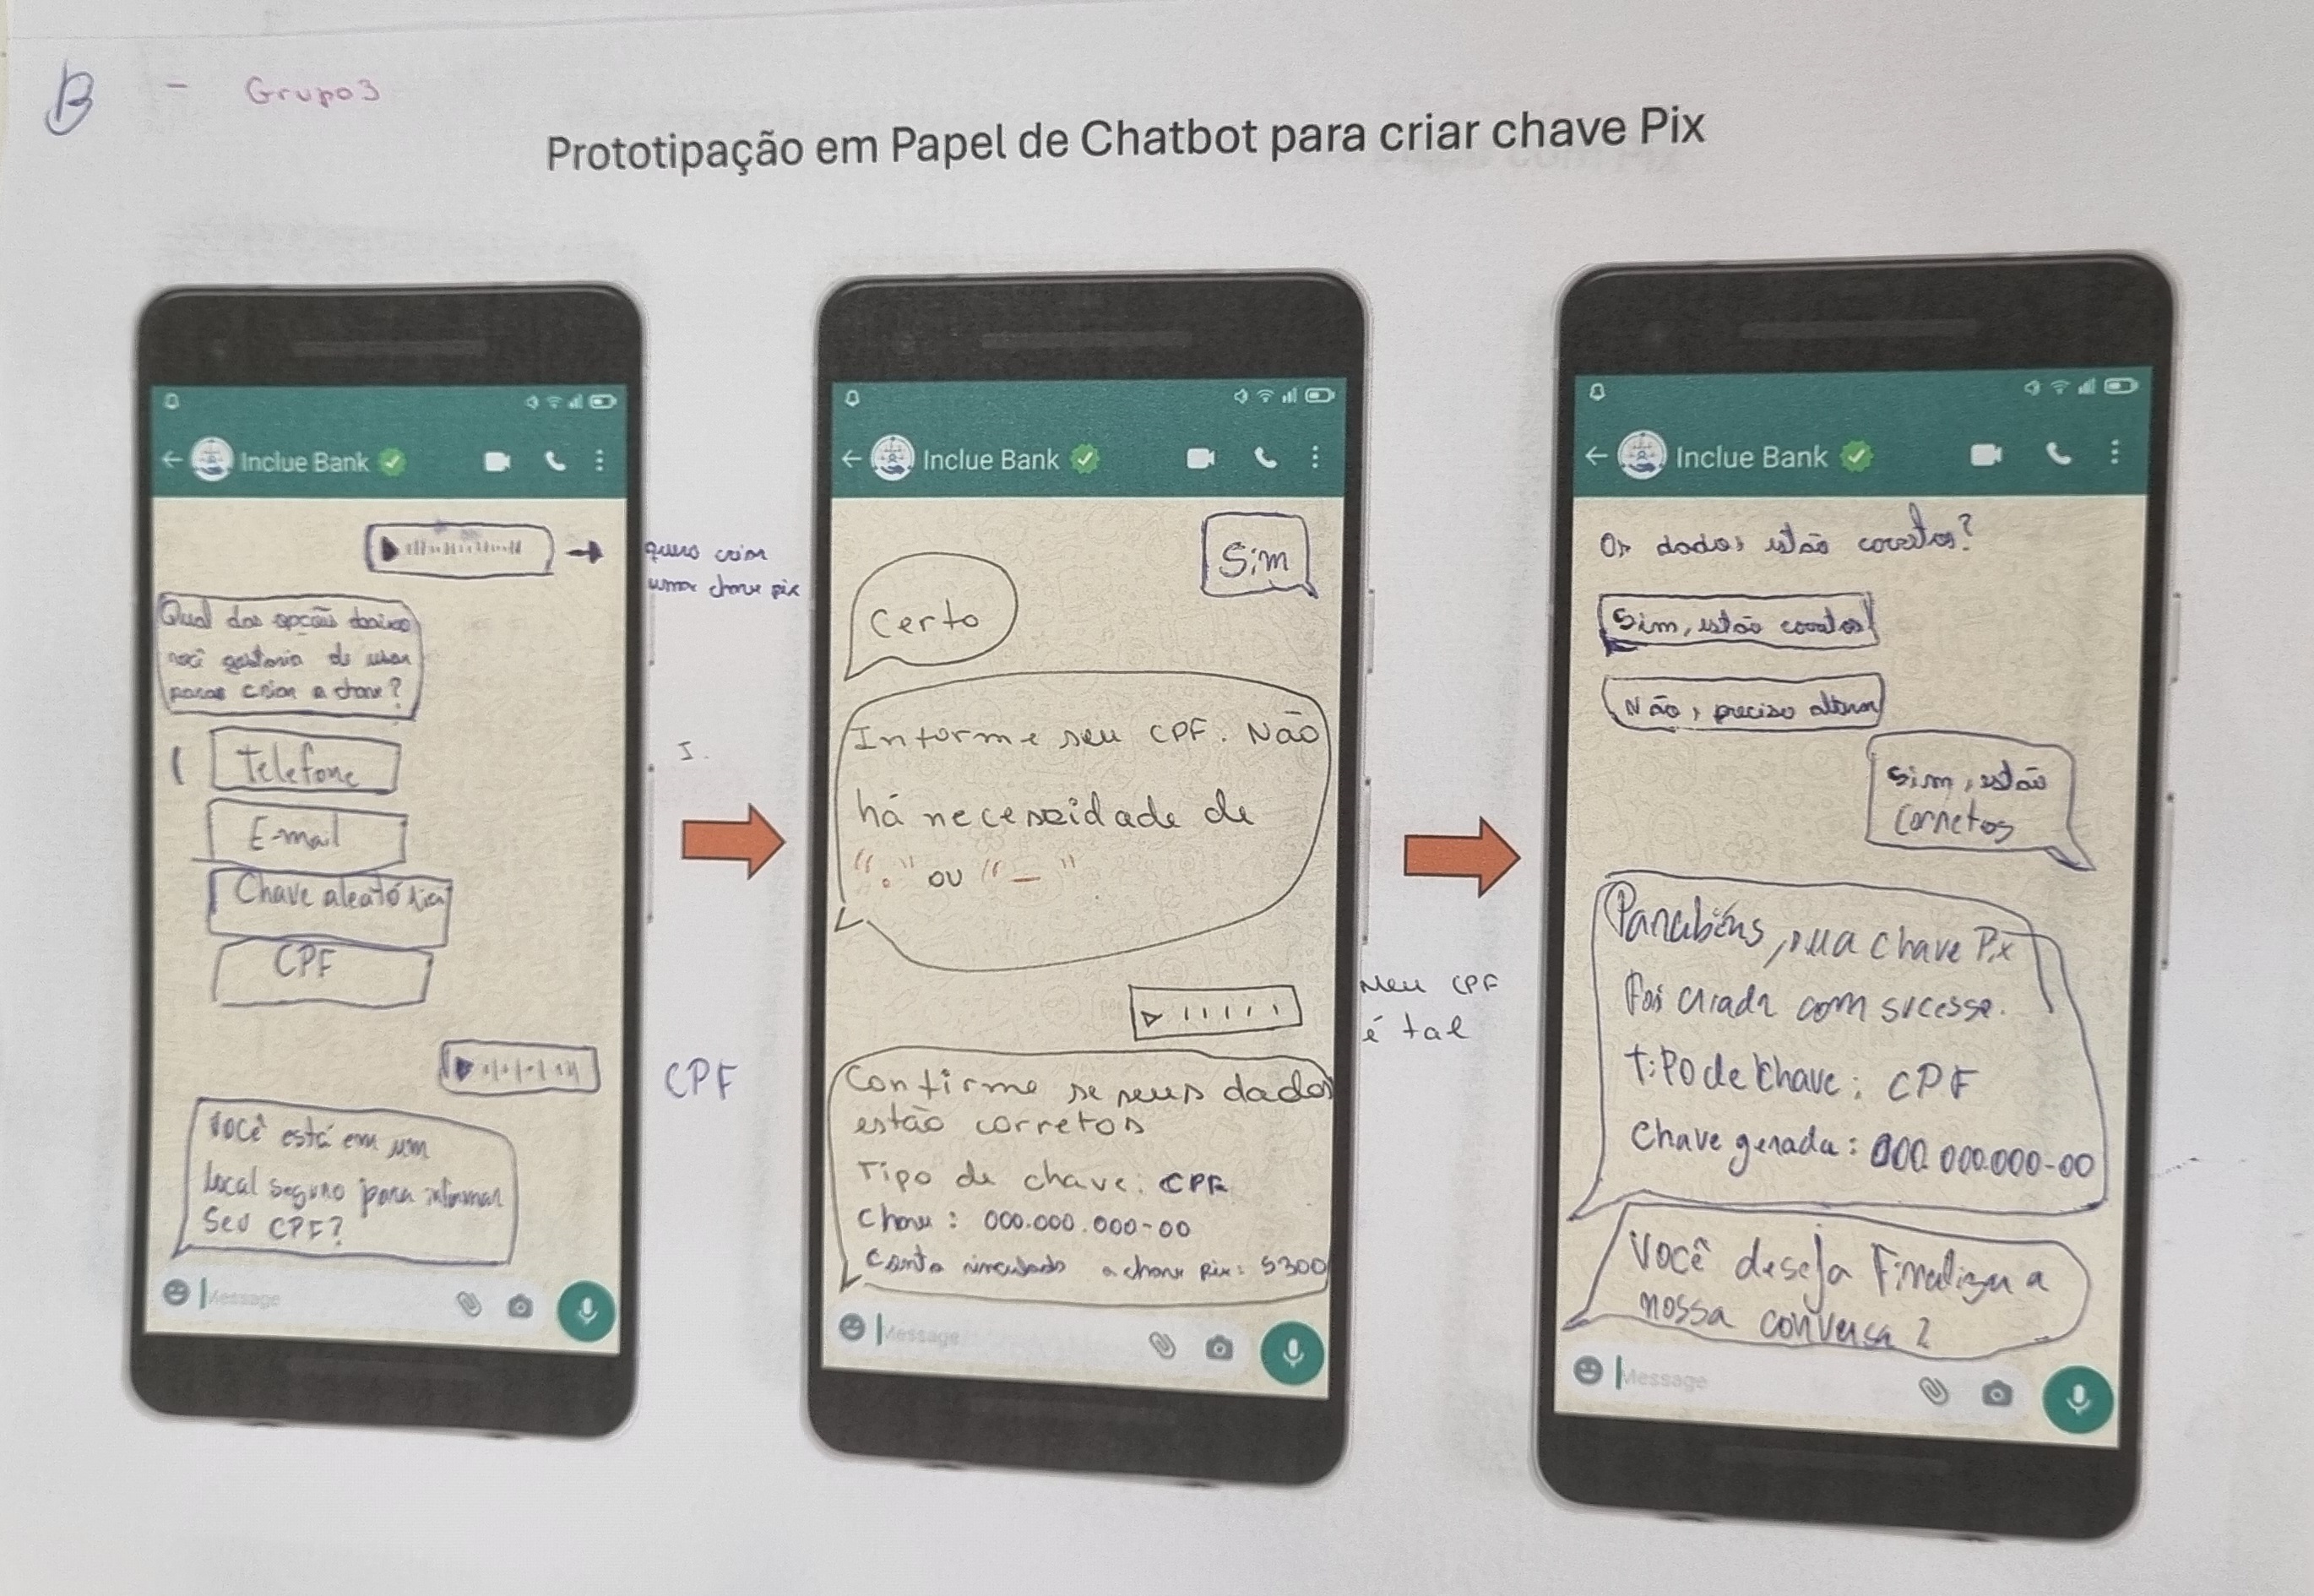 B - Grupo3
Prototipação em Papel de Chatbot para criar chave Pix
Inclue Bank
quero criar
uma chave pix
Qual das opções abaixo
você gostaria de usar
para criar a chave?
Telefone
E-mail
Chave aleatória
CPF
CPF
Você está em um
local seguro para informar
seu CPF?
Message
I.
Inclue Bank
Sim
Certo
Informe seu CPF. Não
há necessidade de
"." ou "-"
Meu CPF
é tal
Confirme se seus dados
estão corretos
Tipo de chave: CPF
Chave: 000.000.000-00
Conta vinculada a chave pix: 5300
Message
Inclue Bank
Os dados estão corretos?
Sim, estão corretos
Não, preciso alterar
Sim, estão
corretos
Parabéns, sua chave Pix
foi criada com sucesso.
tipo de chave: CPF
Chave gerada: 000.000.000-00
Você deseja Finalizar a
nossa conversa?
Message